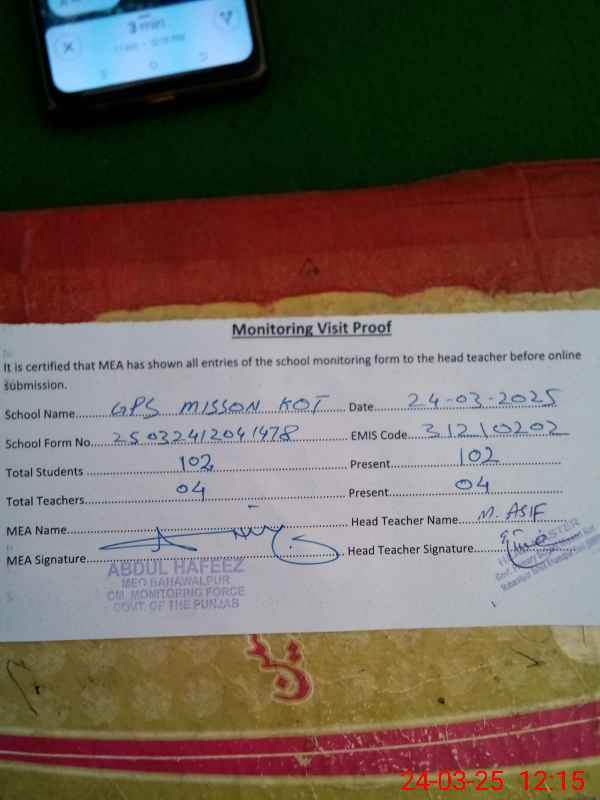 3 min
Monitoring Visit Proof
It is certified that MEA has shown all entries of the school monitoring form to the head teacher before online
submission.
School Name GPS MISSON KOT Date 24-03-2025
School Form No. 25032412041478 EMIS Code 31210202
Total Students 102 Present 102
Total Teachers 04 Present 04
MEA Name Head Teacher Name M. ASIF
MEA Signature Head Teacher Signature
ABDUL HAFEEZ
MEO BAHAWALPUR
CM. MONITORING FORCE
GOVT. OF THE PUNJAB
24-03-25 12:15